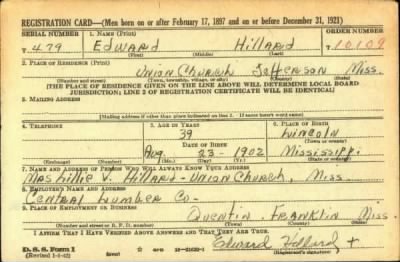 REGISTRATION CARD—(Men born on or after February 17, 1897 and on or before December 31, 1921)
SERIAL NUMBER 1. NAME (Print) ORDER NUMBER
T 479 Edward Hillard 10109
(First) (Middle) (Last)
2. PLACE OF RESIDENCE (Print)
Union Church Jefferson Miss.
(Number and street) (Town, township, village, or city) (County) (State)
[THE PLACE OF RESIDENCE GIVEN ON THE LINE ABOVE WILL DETERMINE LOCAL BOARD
JURISDICTION; LINE 2 OF REGISTRATION CERTIFICATE WILL BE IDENTICAL]
3. MAILING ADDRESS
[Mailing address if other than place indicated on line 2. If same insert word same]
4. TELEPHONE 5. AGE IN YEARS 6. PLACE OF BIRTH
39 Lincoln
DATE OF BIRTH (Town or county)
Aug. 23 - 1902 Mississippi
(Exchange) (Number) (Mo.) (Day) (Yr.) (State or country)
7. NAME AND ADDRESS OF PERSON WHO WILL ALWAYS KNOW YOUR ADDRESS
Mrs. Lillie V. Hillard - Union Church, Miss.
8. EMPLOYER'S NAME AND ADDRESS
Central Lumber Co -
9. PLACE OF EMPLOYMENT OR BUSINESS
Quentin. Franklin Miss.
(Number and street or R. F. D. number) (Town) (County) (State)
I AFFIRM THAT I HAVE VERIFIED ABOVE ANSWERS AND THAT THEY ARE TRUE.
D. S. S. Form 1 Edward Hillard
(Revised 1-1-42) (over) (Registrant's signature)